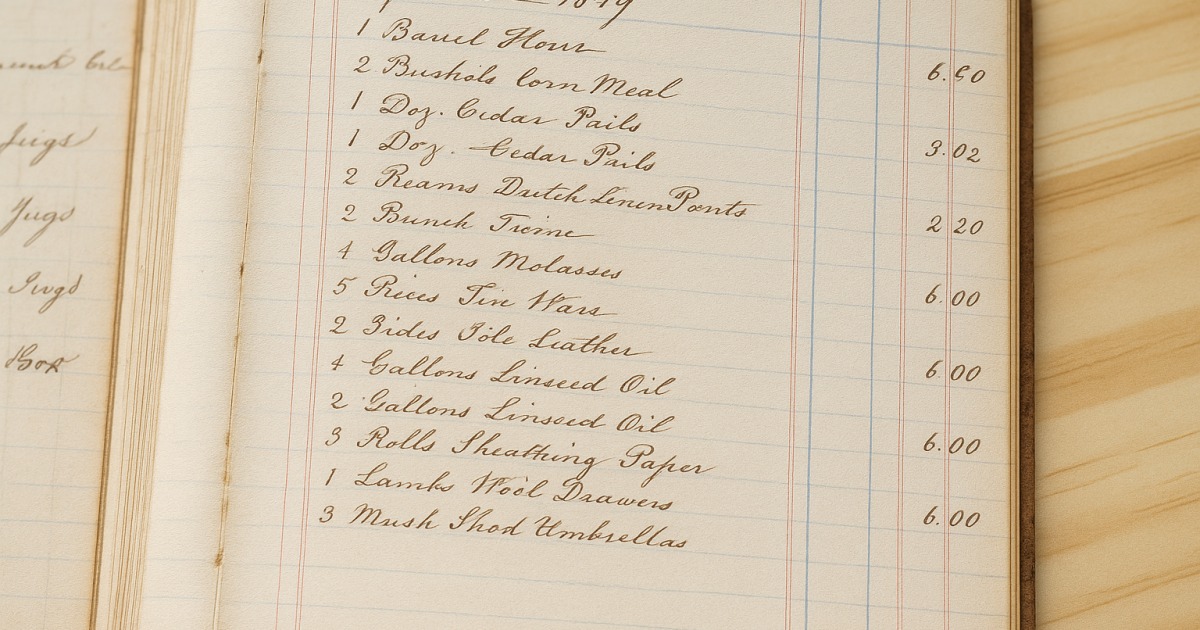 Jugs
Jugs
Box
1 Barrel Flour
2 Bushols Corn Meal 6.90
1 Doz. Cedar Pails
1 Doz. Cedar Pails 3.02
2 Reams Dutch Linen 2 20
2 Bunch
4 Gallons Molasses
5 6.00
2 Sides Sole Leather
4 Gallons Linseed Oil 6 00
2 Gallons Linseed Oil
3 Rolls Sheathing Paper 6.00
1 Lambs Wool Drawers
3 Mush Shod Umbrellas 6.00